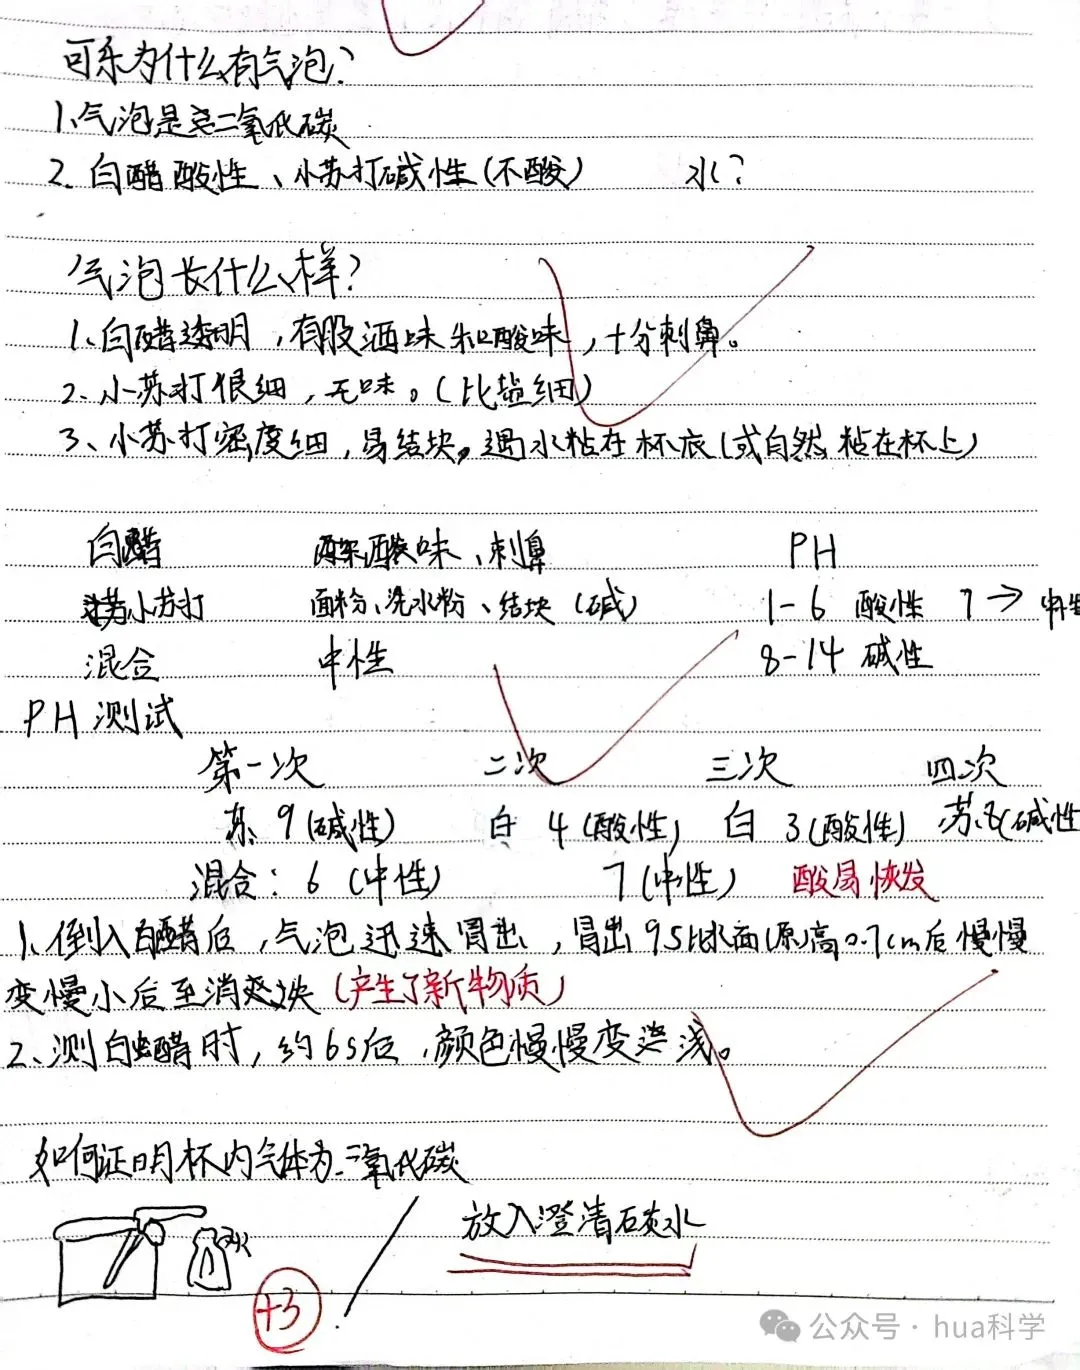 可乐为什么有气泡？
1、气泡是二氧化碳
2、白醋酸性、小苏打碱性(不酸) 水？
气泡长什么样？
1、白醋透明，有股酒味和酸味，十分刺鼻。
2、小苏打很细，无味。(比盐细)
3、小苏打密度细，易结块。遇水粘在杯底(或自然粘在杯上)
白醋 酸味、刺鼻 PH
小苏打 面粉、洗衣粉、结块 (碱) 1-6 酸性 7→中性
混合 中性 8-14 碱性
PH 测试
第一次 二次 三次 四次
苏 9 (碱性) 白 4 (酸性) 白 3 (酸性) 苏 8 (碱性
混合：6 (中性) 7 (中性) 酸易恢发
1、倒入白醋后，气泡迅速冒出，冒出 9s 比水面(原)高0.7cm后慢慢
变小后至消失 (产生了新物质)
2、测白醋时，约6s后，颜色慢慢变浅。
如何证明杯内气体为二氧化碳
放入澄清石灰水
+3
公众号·hua科学